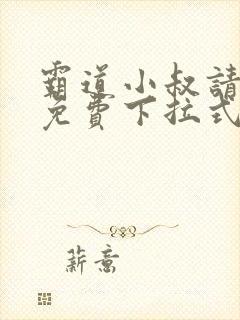 霸道小叔請
免費下拉式
薪意